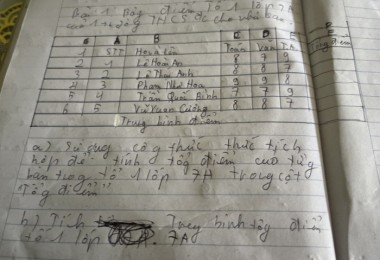 Bài 1 Bảng điểm Tổ 1 lớp 7A
của trường THCS được cho như sau
a A B C D E F
1 STT Họ và tên Toán Văn T.A Tổng điểm
2 1 Lê Hoài An 8 7 9
3 2 Lê Thụy Anh 8 8 7
4 3 Phạm Như Hoa 9 9 8
5 4 Trần Quốc Bình 7 7 9
6 5 Vũ Xuân Cường 8 8 7
Trung bình điểm
a) Sử dụng công thức thức tích
hợp để tính tổng điểm của từng
bạn tổ 1 lớp 7A trong cột
"Tổng điểm"
b) Tính Trung bình tổng điểm
tổ 1 lớp 7A